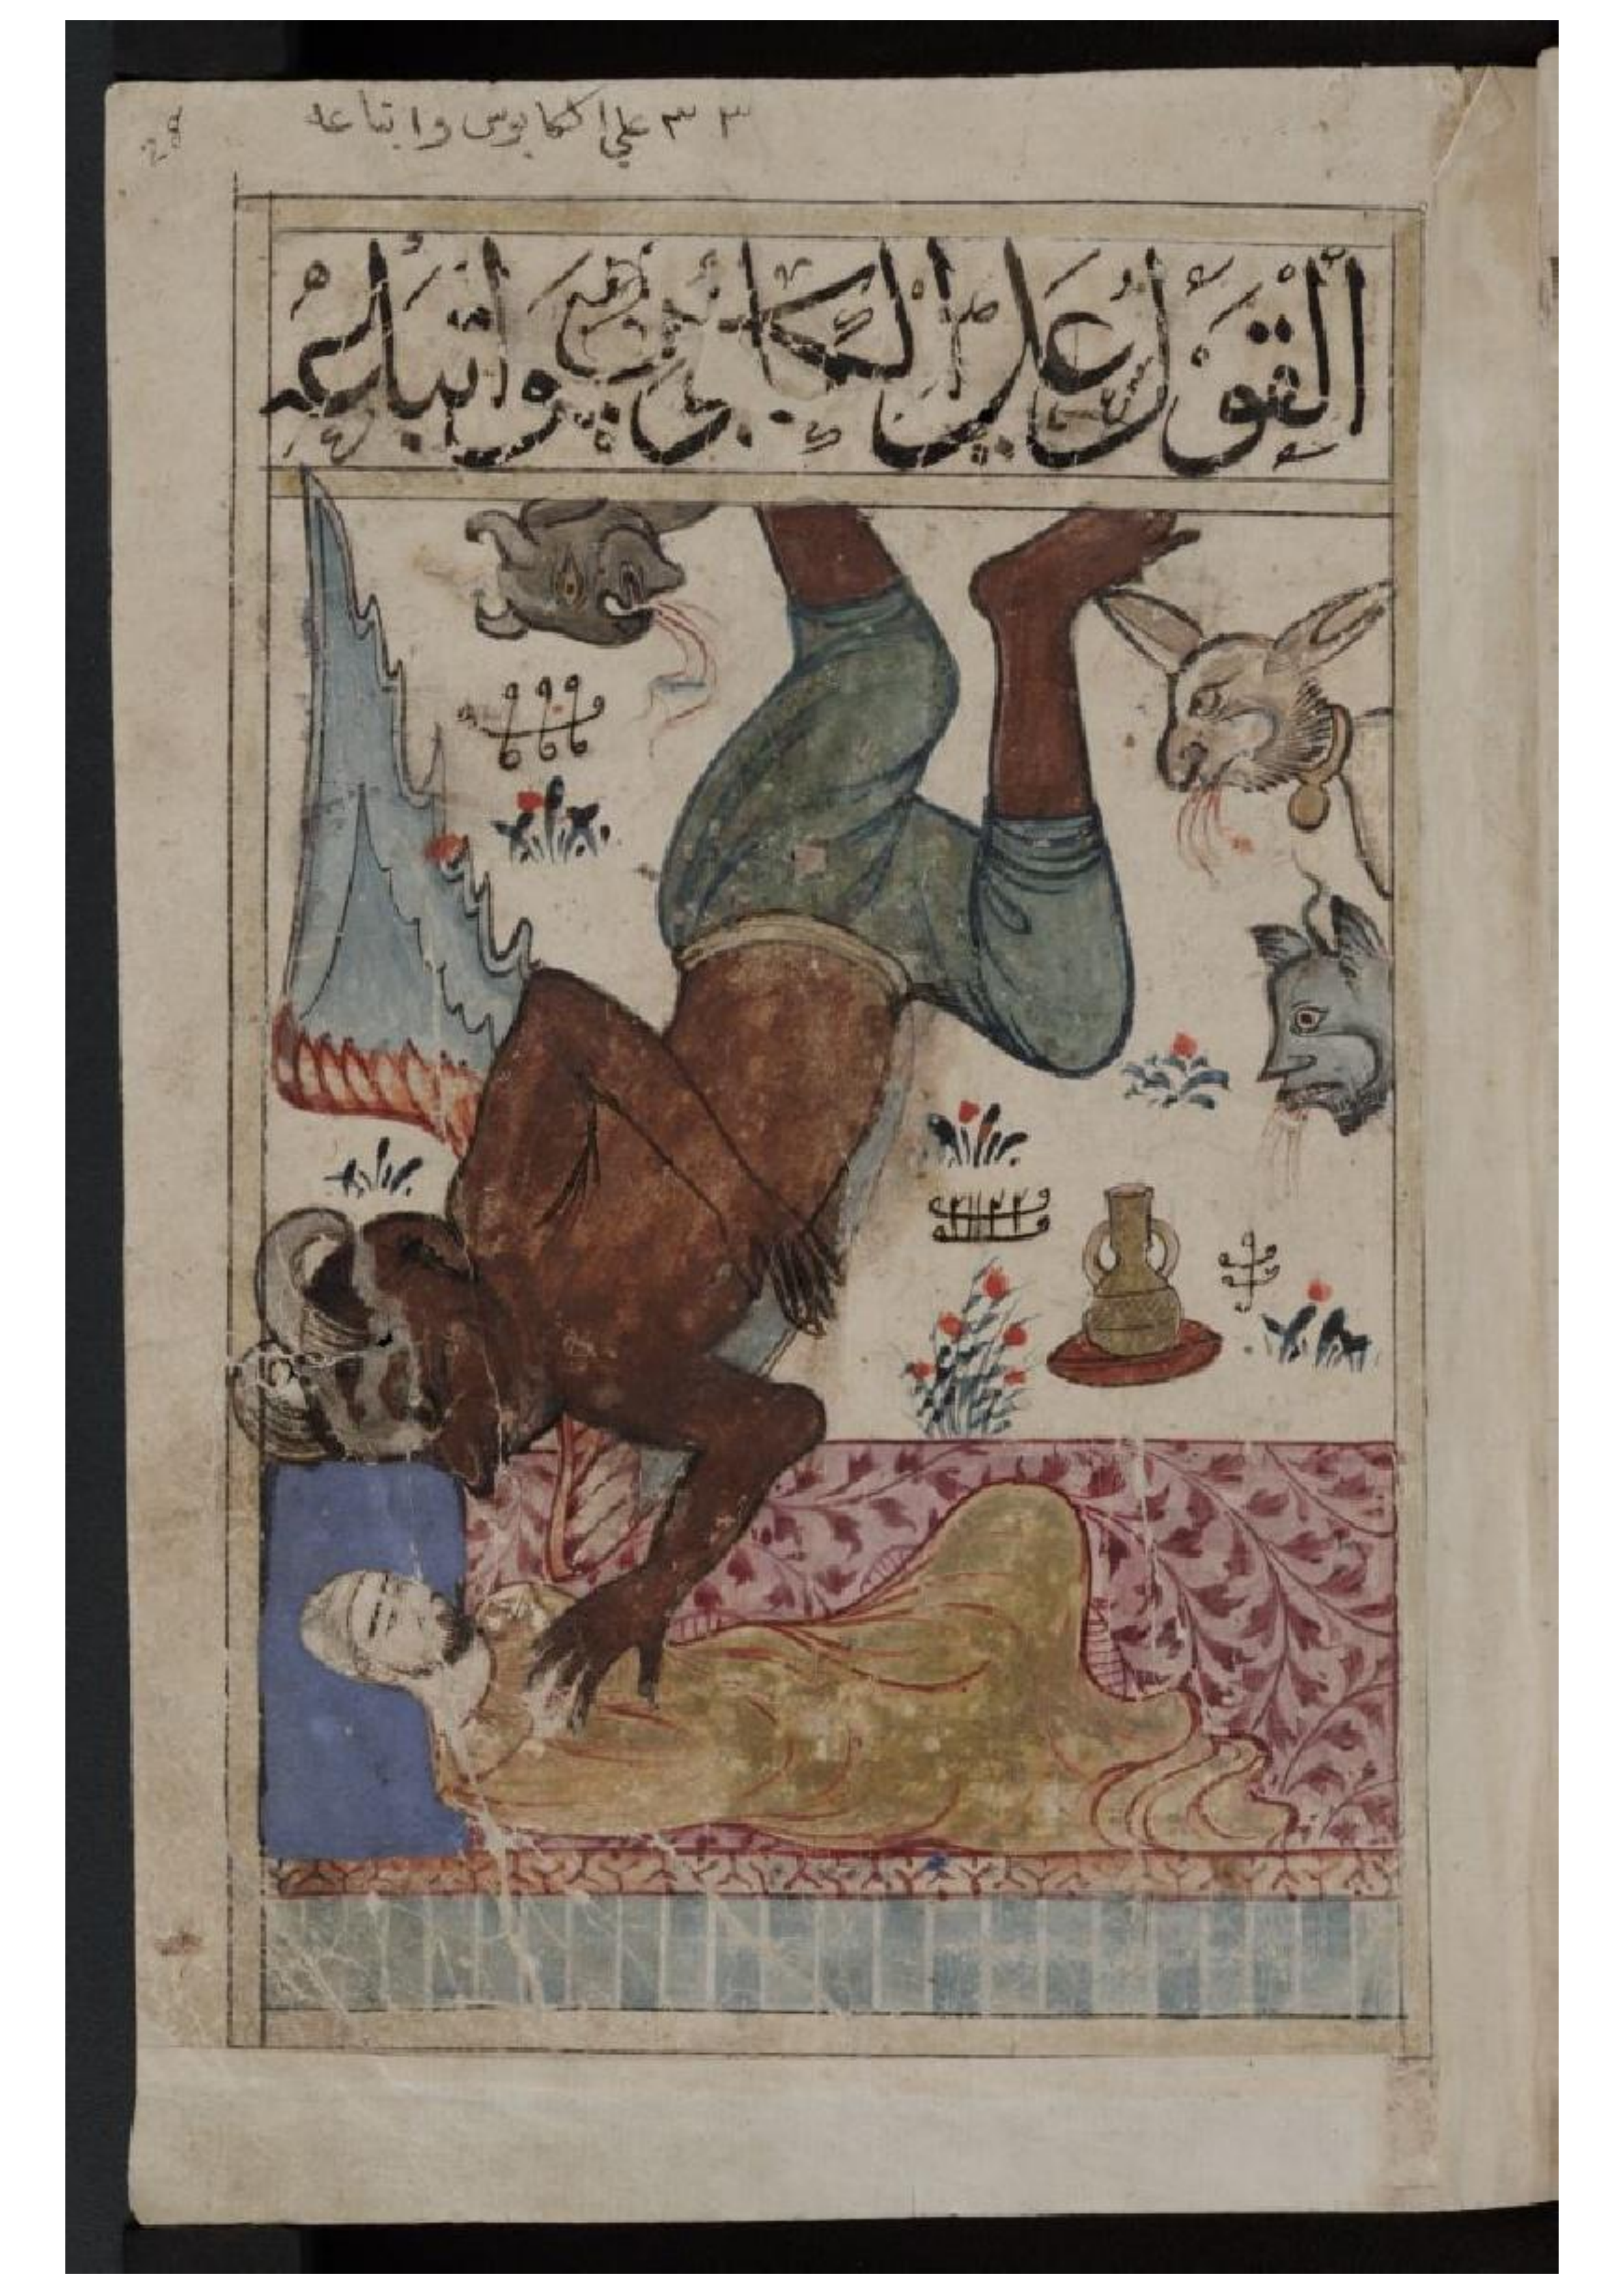 ٣٣ على الكابوس واتباعه
28
القول على الكابوس واتباعه